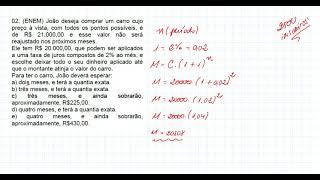 02. (ENEM) João deseja comprar um carro cujo
preço à vista, com todos os pontos possíveis, é
de R$ 21.000,00 e esse valor não será
reajustado nos próximos meses.
Ele tem R$ 20.000,00, que podem ser aplicados
a uma taxa de juros compostos de 2% ao mês, e
escolhe deixar todo o seu dinheiro aplicado até
que o montante atinja o valor do carro.
Para ter o carro, João deverá esperar:
a) dois meses, e terá a quantia exata.
b) três meses, e terá a quantia exata.
c) três meses, e ainda sobrarão,
aproximadamente, R$225,00.
d) quatro meses, e terá a quantia exata.
e) quatro meses, e ainda sobrarão,
aproximadamente, R$430,00.
n (período)
i = 2% = 0,02
M = C.(1+i)ⁿ
M = 20000(1+0,02)²
M = 20000(1,02)²
M = 20000.(1,04)
M = 20808